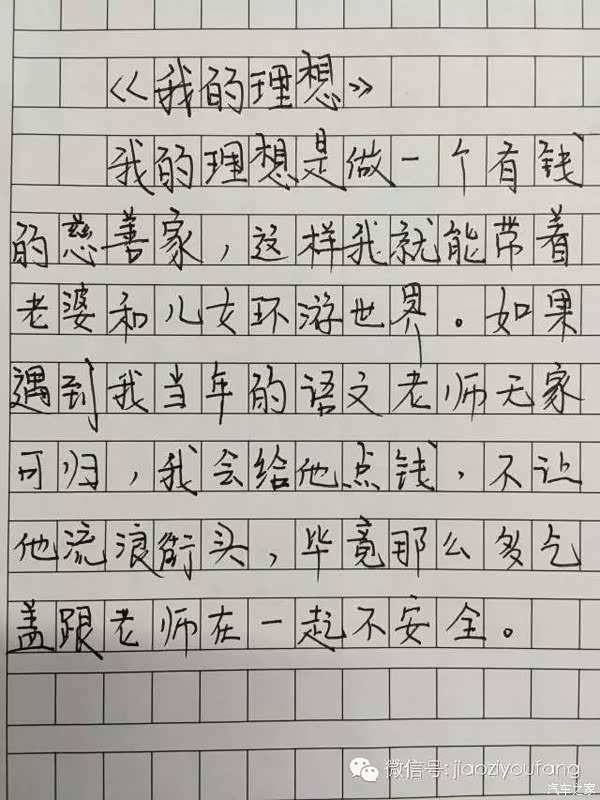 《我的理想》
我的理想是做一个有钱
的慈善家，这样我就能带着
老婆和儿女环游世界。如果
遇到我当年的语文老师无家
可归，我会给他点钱，不让
他流浪街头，毕竟那么多乞
盖跟老师在一起不安全。
微信号: jiaoziyoufang
汽车之家